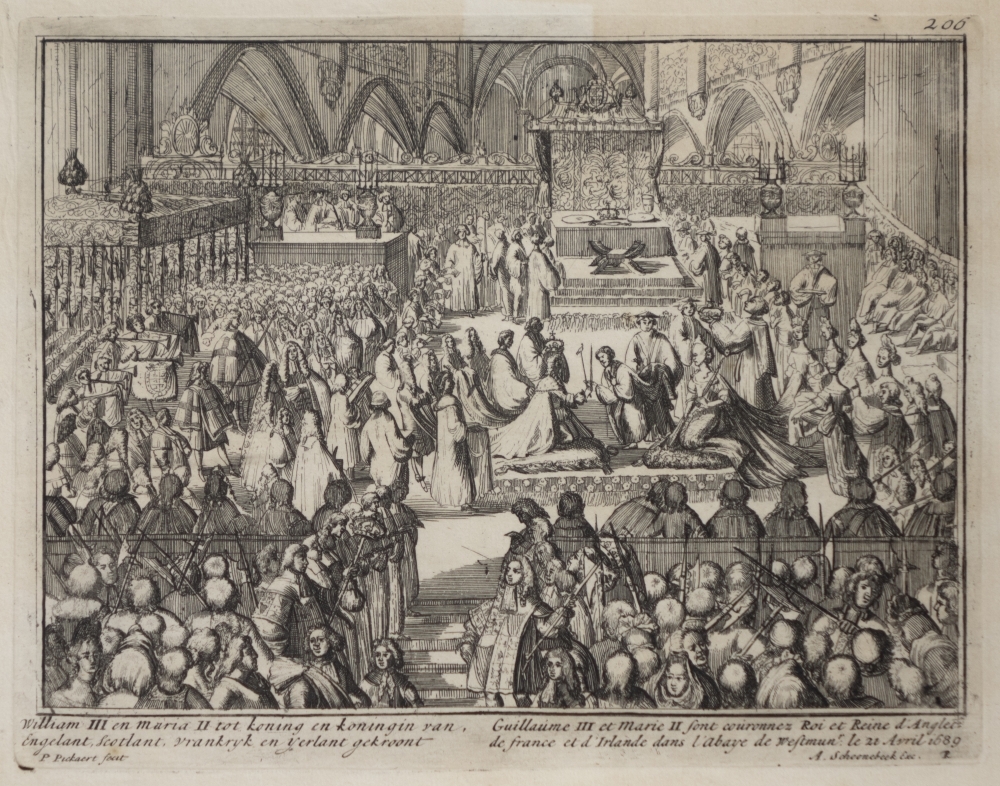 206
William III en Maria II tot koning en koningin van,
Engelant, Scotlant, Vrankryk en Yerlant gekroont
P Pickaert fecit
Guillaume III et Marie II sont couronnez Roi et Reine d'Anglet:
de france et d'Irlande dans l'Abaye de Westmunr. le 21 Avril 1689
A. Schoonebeek Exc.